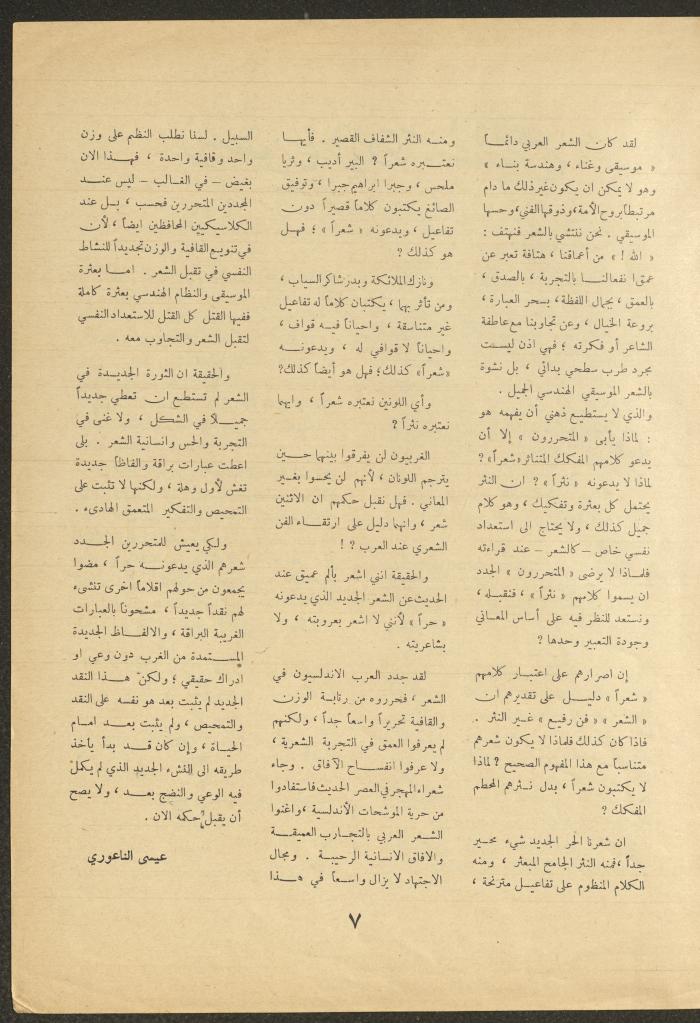 لقد كان الشعر العربي دائمـاً
« موسيقى وغناء ، وهندسة بنـاء »
وهو لا يمكن ان يكون غير ذلك ما دام
مرتبطاً بروح الأمة، وذوقها الفني، وحسها
الموسيقي . نحن ننتشي بالشعر فنهتف :
« الله ! » من أعماقنا ، هتافة تعبر عن
عمق انفعالنـا بالتجربة ، بالصدق ،
بالعمق ، بجمال اللفظة، بسحر العبارة ،
بروعة الخيال ، وعن تجاوبنا مع عاطفة
الشاعر أو فكرته ؛ فهي اذن ليست
مجرد طرب سطحي بدائي ، بل نشوة
بالشعر الموسيقي الهندسي الجميل .
والذي لا يستطيع ذهني أن يفهمه هو
: لماذا يأبى « المتحررون » إلا أن
يدعو كلامهم المفكك المتناثر «شعراً» ؟
لماذا لا يدعونه « نثراً » ؟ ان النثر
يحتمل كل بعثرة وتفكيك ، وهو كلام
جميل كذلك ، ولا يحتاج الى استعداد
نفسي خاص – كالشعر – عند قراءته
فلمـاذا لا يرضى « المتحررون » الجدد
ان يسموا كلامهم « نثراً » ، فنقبله ،
ونستعد للنظر فيه على أساس المعـاني
وجودة التعبير وحدها ؟
إن اصرارهم على اعتبـار كلامهم
« شعراً » دليـل على تقديرهم ان
« الشعر » « فن رفيع » غـير النثر .
فاذا كان كذلك فلماذا لا يكون شعرهم
متناسباً مع هذا المفهوم الصحيح ؟ لماذا
لا يكتبون شعراً ، بدل نـثرهم المحطم
المفكك ؟
ان شعرنا الحر الجديد شيء محـير
جداً ، فمنه النثر الجامح المبعثر ، ومنه
الكلام المنظوم على تفاعيـل مترنحة ،
ومنـه النثر الشفاف القصير . فأيهـا
نعتـبره شعراً ؟ البير أديب ، وثريا
ملحس ، وجبرا ابراهيم جبرا ، وتوفيق
الصائغ يكتبون كلاماً قصيراً دون
تفاعيل ، ويدعونه « شعراً » ؛ فهـل
هو كذلك ؟
ونازك الملائكة وبدر شاكر السياب ،
ومن تأثر بهما ، يكتبان كلاماً له تفاعيل
غير متناسقة ، واحياناً فيـه قواف ،
واحياناً لا قوافي له ، ويدعونـه
«شعراً» كذلك ؛ فهل هو أيضاً كذلك؟
وأي اللونين نعتبره شعراً ، وايهما
نعتبره نثراً ؟
الغربيون لن يفرقوا بينهما حـين
يترجم اللونان ، لأنهم لن يحسوا بغـير
المعاني . فهل نقبل حكمهم ان الاثنين
شعر ، وانهما دليل على ارتقـاء الفن
الشعري عند العرب ؟ !
والحقيقة انني اشعر بألم عميق عند
الحديث عن الشعر الجديد الذي يدعونه
« حراً » لأنني لا اشعر بعروبته ، ولا
بشاعريته .
لقد جدد العرب الاندلسيون في
الشعر ، فحرروه من رتابة الوزن
والقافية تحريراً واسعاً جداً ، ولكنهم
لم يعرفوا العمق في التجربة الشعرية ،
ولا عرفوا انفسـاح الآفاق . وجاء
شعراء المهجر في العصر الحديث فاستفادوا
من حرية الموشحات الأندلسية ، واغنوا
الشـعر العربي بالتجـارب العميقـة
والافاق الانسانية الرحيبـة . ومجال
الاجتهاد لا يزال واسعـاً في هـذا
السبيل . لسنا نطلب النظم على وزن
واحد وقافية واحدة ، فهـذا الان
بغيض – في الغالب – ليس عنـد
المجددين المتحررين فحسب ، بـل عند
الكلاسيكيين المحافظين ايضاً ، لأن
في تنويع القافية والوزن تجديداً للنشاط
النفسي في تقبل الشعر . امـا بعثرة
الموسيقى والنظام الهندسي بعثرة كاملة
ففيها القتل كل القتل للاستعداد النفسي
لتقبل الشعر والتجاوب معه .
والحقيقة ان الثورة الجديـدة في
الشعر لم تستطـع ان تعطي جديداً
جميـلاً في الشكل ، ولا غنى في
التجربة والحس وانسانية الشعر . بلى
اعطت عبارات براقة والفاظاً جديدة
تغش لأول وهلة ، ولكنها لا تثبت على
التمحيص والتفكير المتعمق الهادىء .
ولكي يعيش للمتحررين الجـدد
شعرهم الذي يدعونـه حراً ، مضوا
يجمعون من حولهم اقلاماً اخرى تنشىء
لهم نقداً جديداً ، مشحوناً بالعبارات
الغريبة البراقة ، والالفـاظ الجديدة
المستمدة من الغرب دون وعي او
ادراك حقيقي ؛ ولكن هـذا النقد
الجديد لم يثبت بعد هو نفسه على النقد
والتمحيص ، ولم يثبت بعـد امـام
الحيـاة ، وإن كان قـد بدأ يأخذ
طريقه الى النشء الجديد الذي لم يكمل
فيه الوعي والنضج بعـد ، ولا يصح
أن يقبل حكمه الان .
عيسى الناعوري
٧